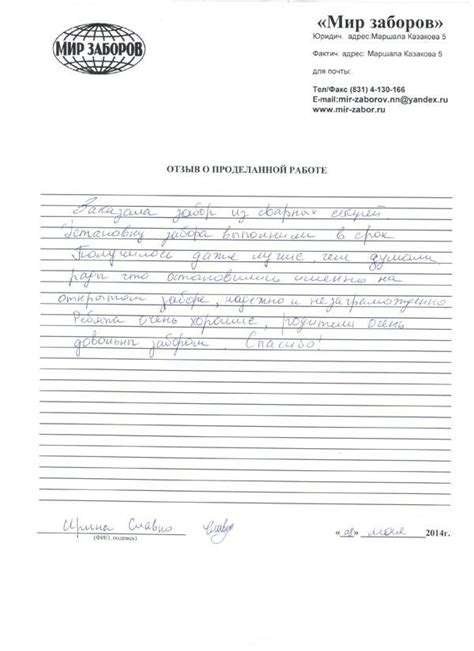 МИР ЗАБОРОВ
«Мир заборов»
Юридич. адрес:Маршала Казакова 5
Фактич. адрес: Маршала Казакова 5
для почты:
Тел/Факс (831) 4-130-166
E-mail:mir-zaborov.nn@yandex.ru
www.mir-zabor.ru
ОТЗЫВ О ПРОДЕЛАННОЙ РАБОТЕ
Заказала забор из сварных секций.
Установку забора выполнили в срок
Получилось даже лучше, чем думали
рады что остановились именно на
открытом заборе, надежно и незагроможденно
Ребята очень хорошие, родители очень
довольны забором. Спасибо!
Ирина Славно
(ФИО, подпись)
«08» мая 2014г.